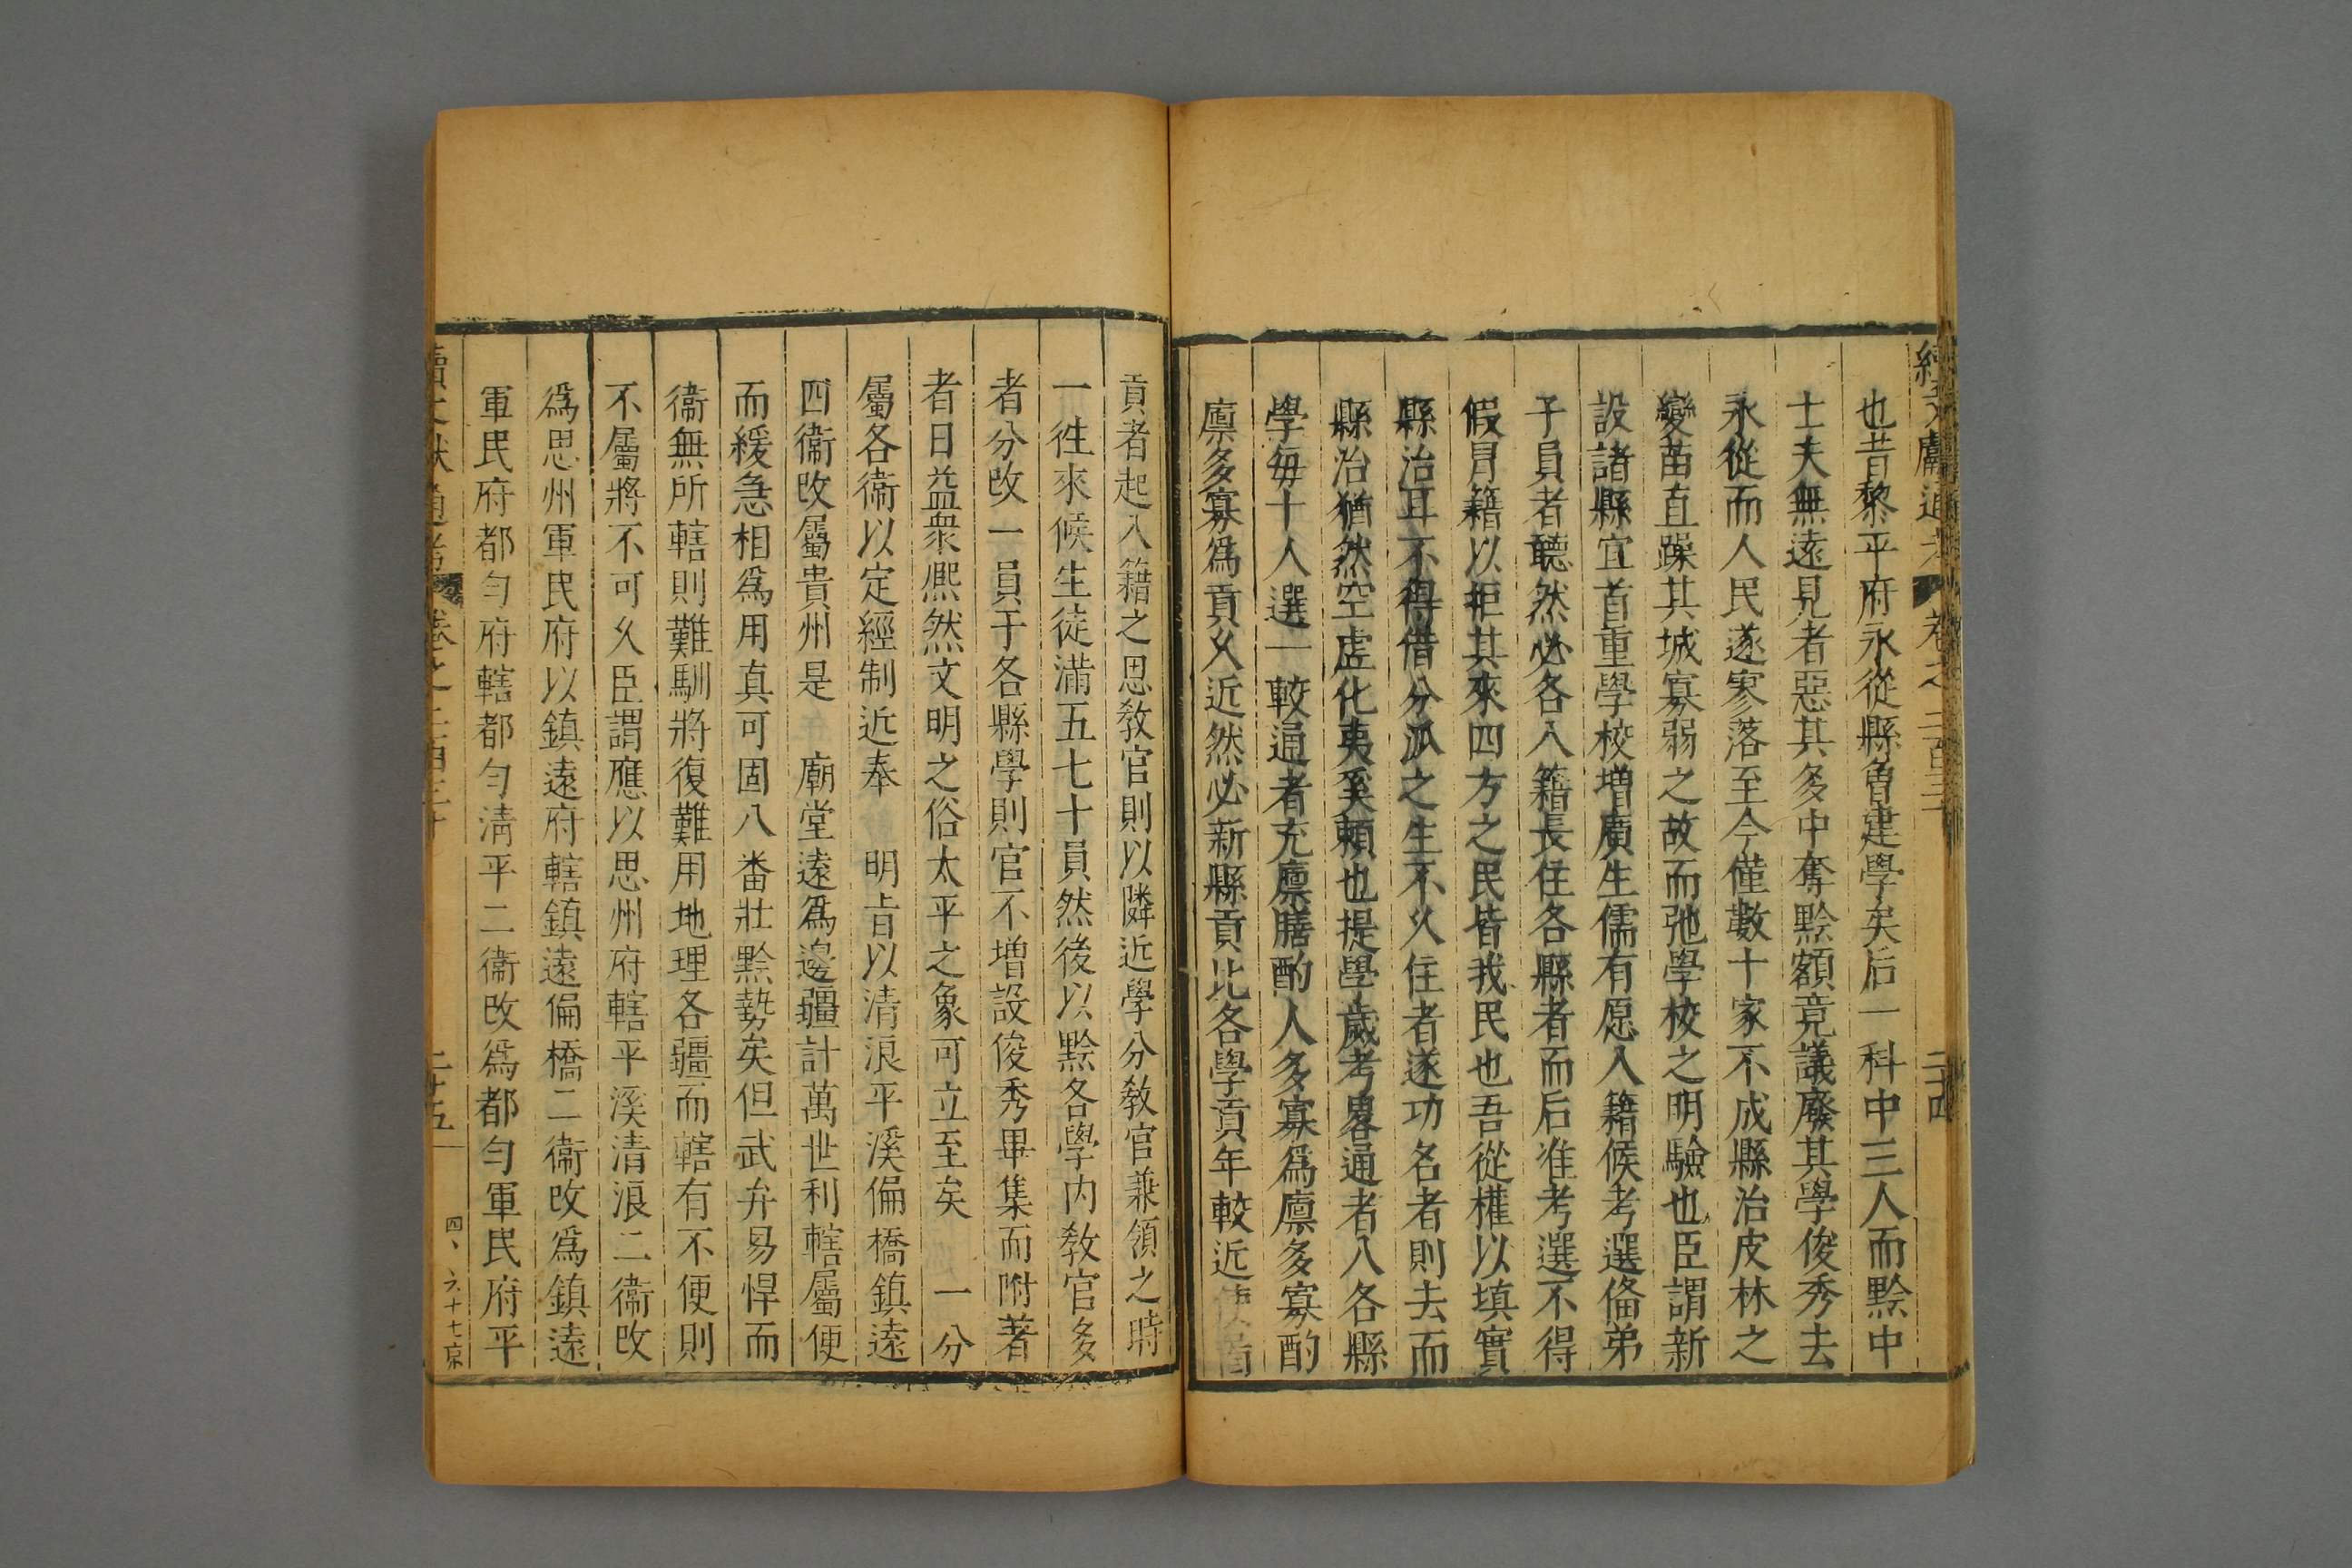 續文獻通考 卷之二百三十 二十四
也昔黎平府永從縣曾建學矣后一科中三人而黔中
士夫無遠見者惡其多中奪黔額竟議廢其學俊秀去
永從而人民遂寥落至今僅數十家不成縣治皮林之
變苗直躁其城寡弱之故而弛學校之明驗也臣謂新
設諸縣宜首重學校増廣生儒有愿入籍候考選俻弟
子員者聽然必各入籍長住各縣者而后准考選不得
假冒籍以拒其來四方之民皆我民也吾從權以填實
縣治耳不得借分派之生不久住者遂功名者則去而
縣治猶然空虛化夷奚頼也提學歲考畧通者入各縣
學每十人選一較通者充廪膳酌人多寡爲廪多寡酌
廪多寡爲貢久近然必新縣貢比各學貢年較近
貢者起入籍之思教官則以隣近學分教官兼領之時
一徃來候生徒滿五七十員然後以黔各學内教官多
者分改一員于各縣學則官不増設俊秀畢集而附著
者日益衆熈然文明之俗太平之象可立至矣 一分
屬各衞以定經制近奉 明旨以清浪平溪偏橋鎮遠
四衞改屬貴州是 廟堂遠爲邊疆計萬世利轄屬便
而緩急相爲用真可固八番壯黔勢矣但武弁易悍而
衞無所轄則難馴將復難用地理各疆而轄有不便則
不屬將不可久臣謂應以思州府轄平溪清浪二衞改
爲思州軍民府以鎮遠府轄鎮遠偏橋二衞改爲鎮遠
軍民府都勻府轄都勻清平二衞改爲都勻軍民府平
續文獻通考 卷之二百三十 二十五
四、六十七京